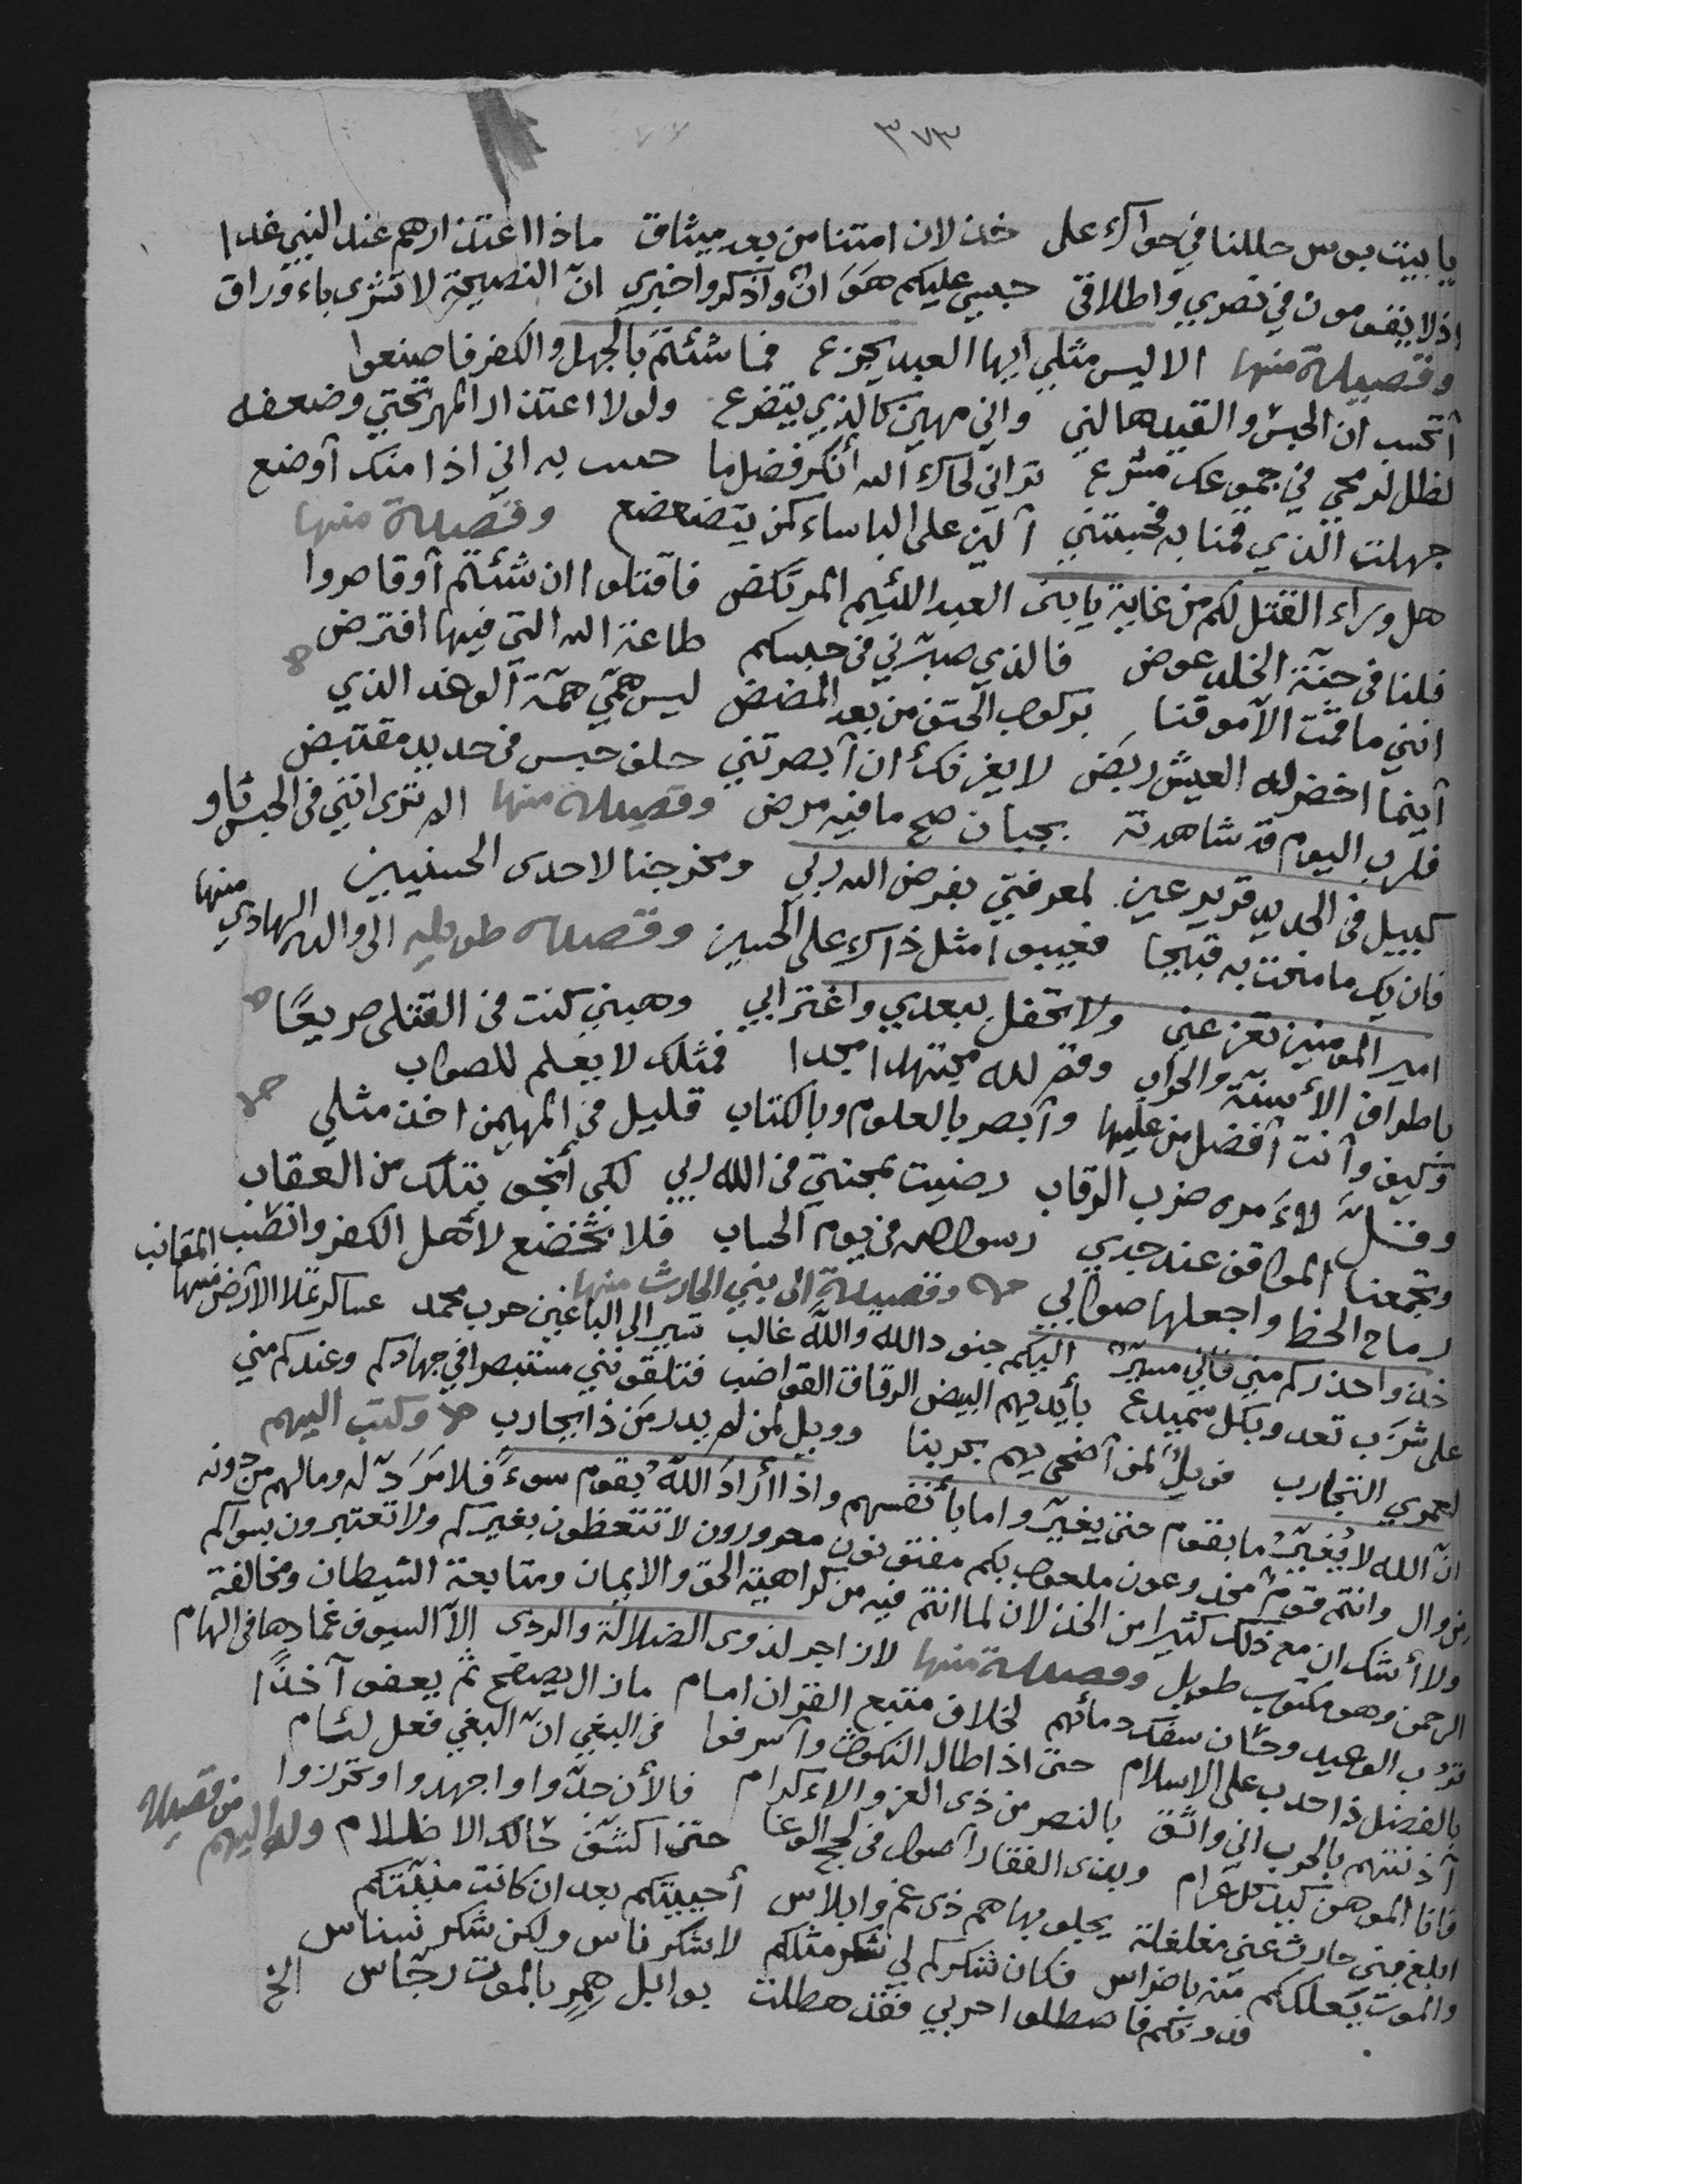 ٣٧٣
يا بيت بوس حللنا في حواك على خذلان امتنا من بعد ميثاق ماذا اعتذارهم عند النبي غدا
اذ لا يقومون في نصري واطلاقي حبسي عليكم هوان واذكروا خبري ان النصيحة لا تشرى باوراق
وقصيدة منها الا ليس مثلي ايها العبد يجزع فما شئتم بالجهل والكفر فاصنعوا
أتحسب ان الحبس والقيد هالني واني مهين كالذي يتضرع ولولا اعتذار المهر تحتي وضعفه
لظل لرمحي في جموعك مشرع تراني لحاك الله أنكر فضل ما حبست به اني اذا منك أوضع
جهلت الذي قمنا به فحبستني ألين على الباساء كمن يتضعضع وقصيدة منها
هل وراء القتل لكم من غاية يا بني العبد اللئيم المرتكض فاقتلوا ان شئتم أو قاصروا
فلنا في جنة الخلد عوض فالذي صبرني في حبسكم طاعة الله التي فيها افترض
انني ما قمت الا موقنا بركوب الحتف من بعد المضض ليس همي همة الوغد الذي
أينما اخضر له العيش ربض لا يغرنك أن أبصرتني حلف حبس في حديد مقتبض
فلرب اليوم قد شاهدته بجبان صح ما فيه مرض وقصيدة منها الم ترى انني في الحبس ثاو
كبيل في الحديد قرير عين لمعرفتي بفرض الله ربي ومخرجنا لاحدى الحسنيين
فان يك ما منحت به قبيحا فعيبوا مثل ذاك على الحسين وقصيدة طويلة الى والده الهادي منها
امير المؤمنين تعز عني ولا تحفل ببعدي واغترابي وهبني كنت في القتلى صريعا
باطراف الأسنة والحراب وقم لله مجتهدا مجدا فمثلك لا يعلم للصواب
وكيف وأنت أفضل من عليها وأبصر بالعلوم وبالكتاب قليل في المهيمن اخذ مثلي
وقتل لامره ضرب الرقاب رضيت بمحنتي في الله ربي لكي أنجو بتلك من العقاب
وتجمعنا المواقف عند جدي رسول الله في يوم الحساب فلا تخضع لأهل الكفر وانصب
رماح الخط واجعلها صوابي وقصيدة الى بني الحارث منها المقانب
خذوا حذركم مني فاني مسير اليكم جنود الله والله غالب تسير الى الباغين حرب محمد عساكر تملا الأرض منها
على شزب تعدو بكل سميدع بأيديهم البيض الرقاق القواضب فتلقونني مستبصرا في جهادكم وعندكم مني
لعمري التجارب فويل لمن أضحى يهم بحربنا وويل لمن لم يدر من ذا يحارب وكتب اليهم
ان الله لا يغير ما بقوم حتى يغيروا ما بأنفسهم واذا أراد الله بقوم سوء فلا مرد له وما لهم من دونه
من وال وانتم قوم مخدوعون ملعوب بكم مفتونون مغرورون لا تتعظون بغيركم ولا تعتبرون بسواكم
ولا أشك ان مع ذلك كثيرا من الخذلان لما انتم فيه من كراهية الحق والايمان ومتابعة الشيطان ومخالفة
الرحمن وهو مكتوب طويل وقصيدة منها لا زاجر لذوى الضلالة والردى الا السيوف غمادها في الهام
قرب الوعيد وحان سفك دمائهم لخلاف متبع القران امام ما زال يصفح ثم يعفو آخذا
بالفضل ذا حدب على الاسلام حتى اذا طال النكوث وأسرفوا في البغي ان البغي فعل لئام
آذنتهم بالحرب اني واثق بالنصر من ذي العز والاكرام فالأن جدوا واجهدوا وتحرزوا
فانا الموهن كيد كل عرام وبذى الفقار أصول في لجج الوغا حتى اكشف حالك الاظلام وله اليهم من قصيدة
ابلغ بني حارث عني مغلغلة يجلو بها هم ذى غم وابلاس أحييتكم بعد ان كانت منيتكم
والموت يعلككم منه باضراس فكان شكركم لي شكر مثلكم لا شكر ناس ولكن شكر نسناس
فدونكم فاصطلوا حربي فقد هطلت بوابل همر بالموت رجاس الخ